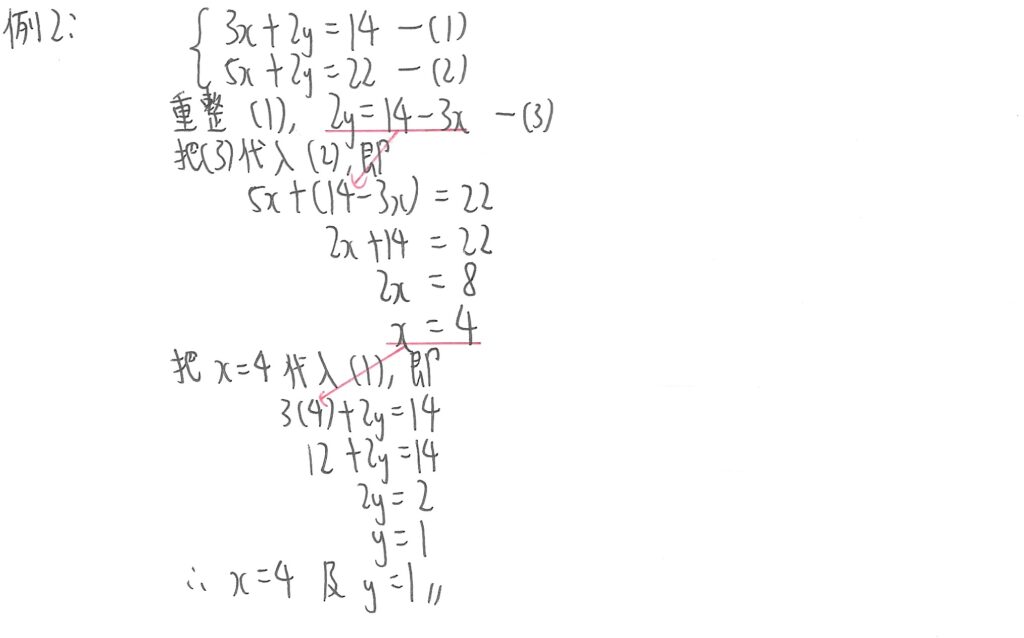 例2: 3x+2y=14 —(1)
5x+2y=22 —(2)
重整 (1), 2y=14-3x —(3)
把(3)代入(2),即
5x+(14-3x) = 22
2x+14 = 22
2x = 8
x = 4
把 x=4 代入(1),即
3(4)+2y=14
12+2y=14
2y=2
y=1
∴ x=4 及 y=1 〃